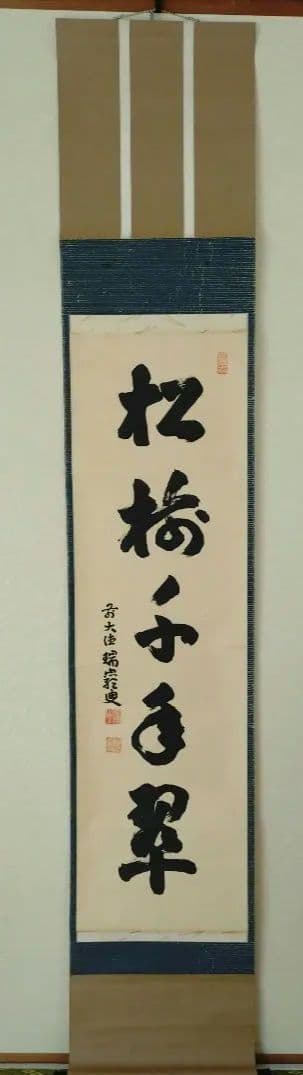 松樹千年翠
前大徳瑞巌叟